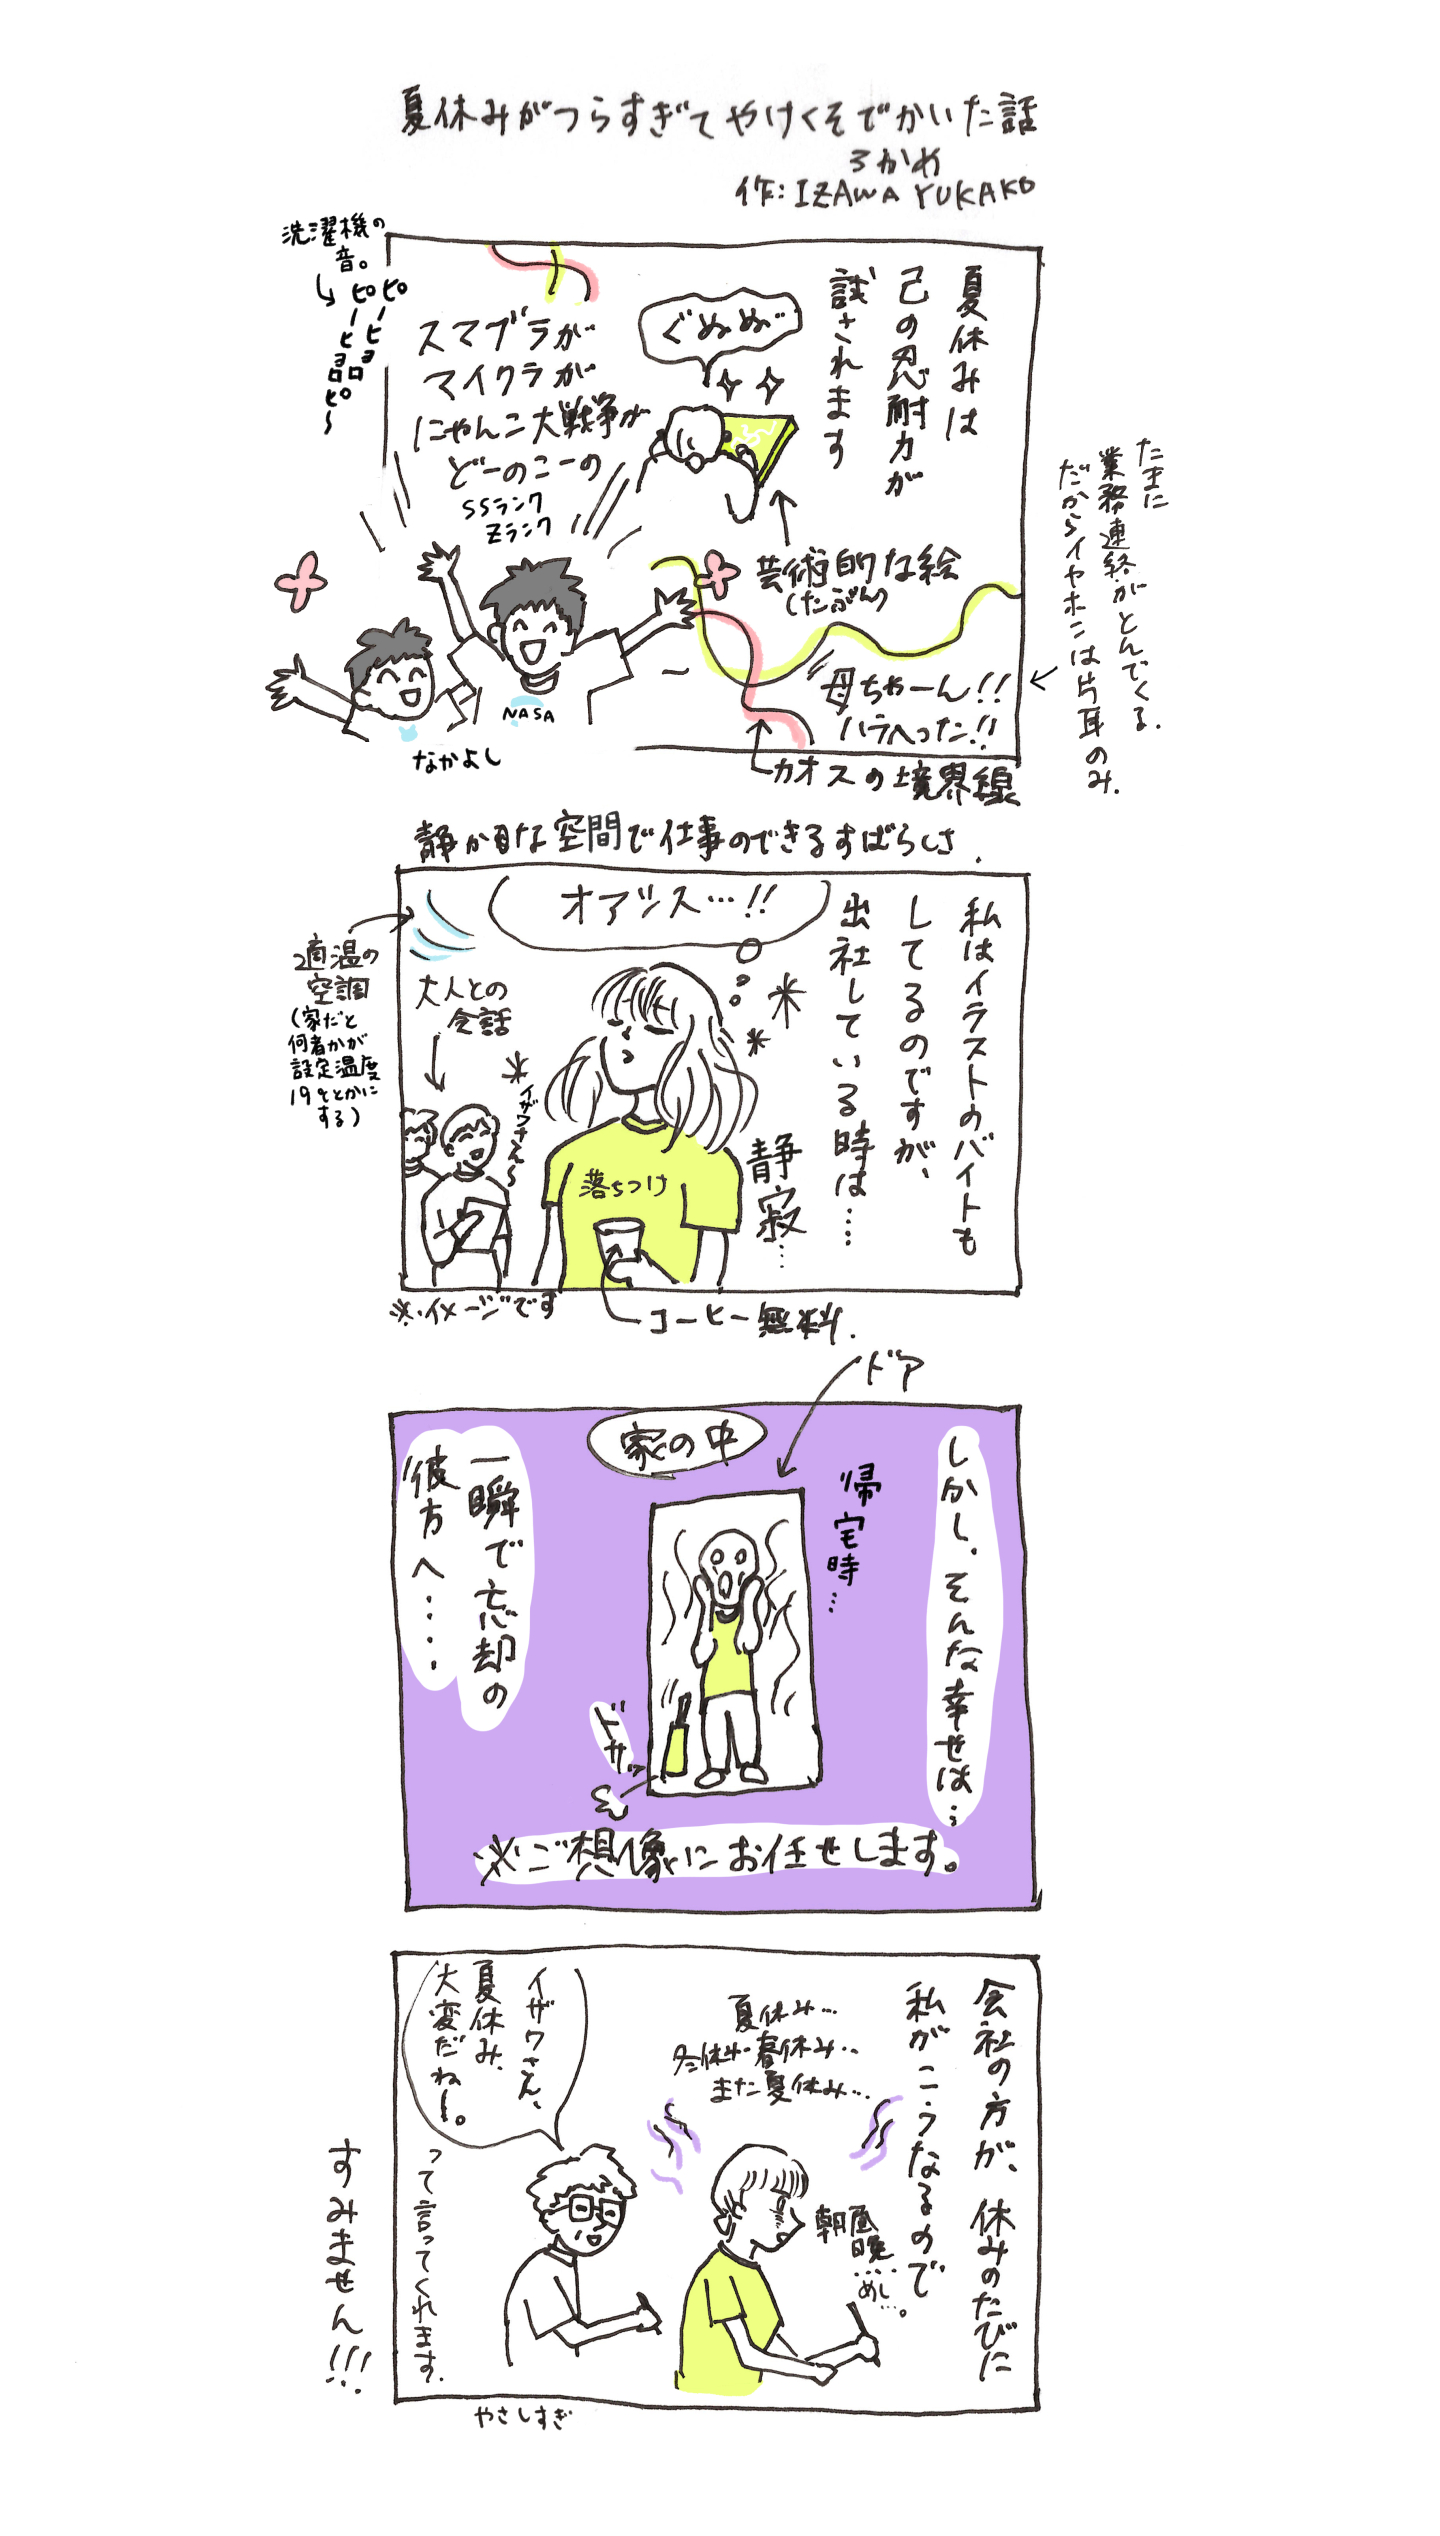 夏休みがつらすぎてやけくそでかいた話
ろかめ
作:IZAWA YUKAKO
夏休みは
己の忍耐力が
試されます
ぐぬぬ゛
洗濯機の
音。
ピーヒョロ
ピーヒョロピ〜
スマブラが
マイクラが
にゃんこ大戦争が
どーのこーの
SSランク
Zランク
芸術的な絵
(たぶん)
たまに
業務連絡がとんでくる.
だからイヤホンは片耳のみ.
母ちゃーん!!
ハラへった!!
NASA
なかよし
カオスの境界線
静かな空間で仕事のできるすばらしさ.
私はイラストのバイトも
してるのですが、
出社している時は……
オアシス…!!
適温の
空調
(家だと
何者かが
設定温度
19℃とかに
する)
大人との
会話
イザワさん〜
落ちつけ
静寂……
※イメージです
コーヒー無料.
ドア
しかし、そんな幸せは…
帰宅時…
家の中
ドサッ
一瞬で忘却の
彼方へ……
※ご想像にお任せします。
会社の方が、休みのたびに
私がこうなるので
夏休み…
冬休み・春休み…
また夏休み…
朝昼
晩……
めし…。
イザワさん、
夏休み、
大変だねー。
って言ってくれます.
すみません!!!
やさしすぎ